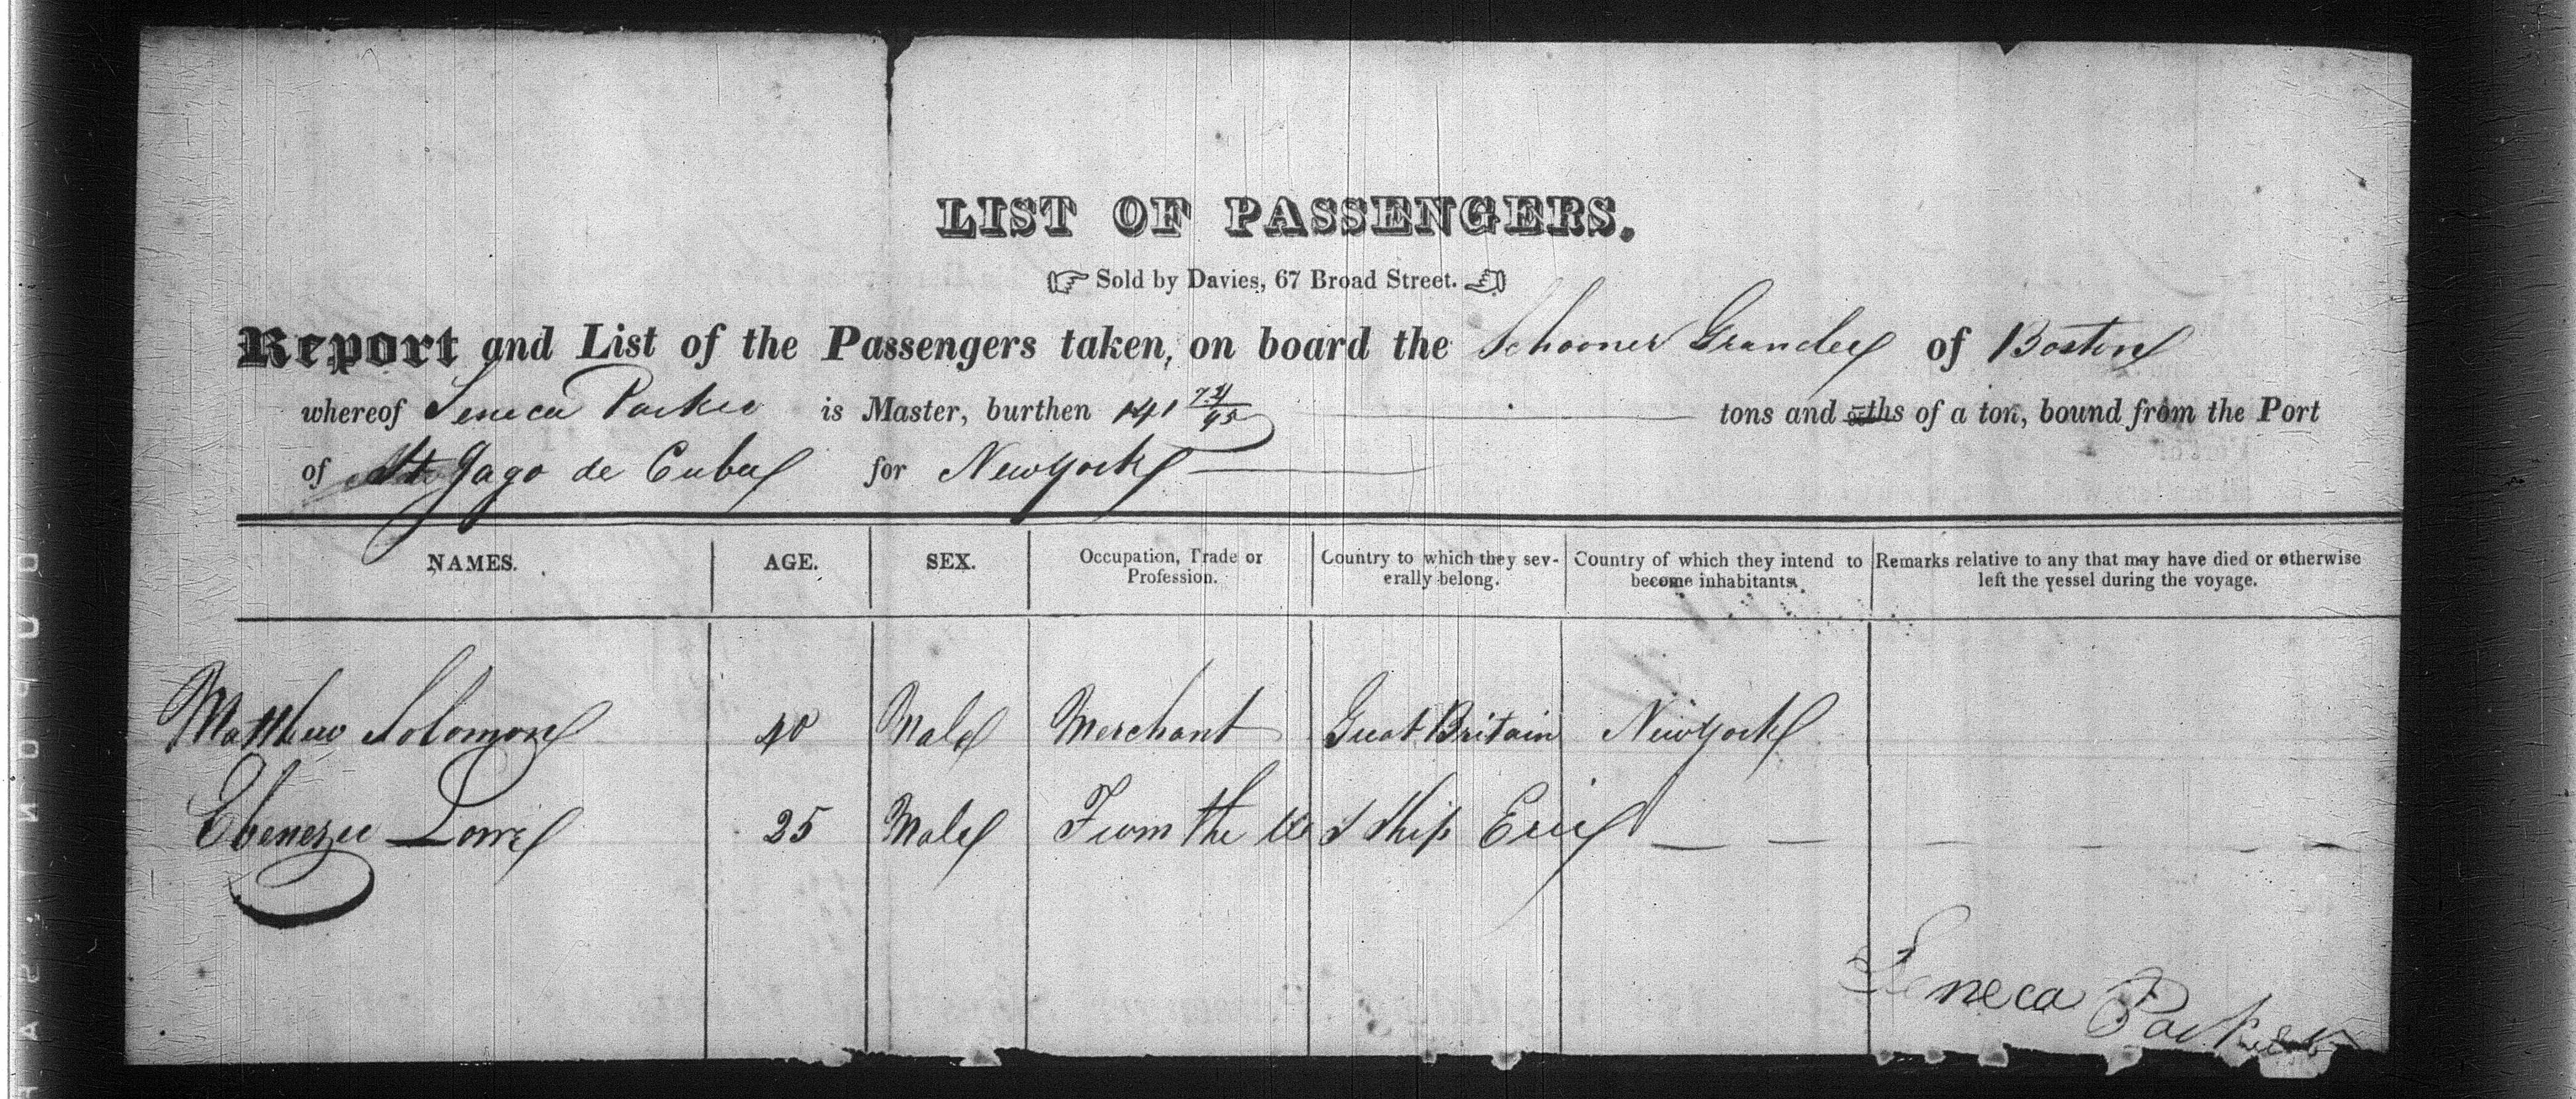 LIST OF PASSENGERS.
Sold by Davies, 67 Broad Street.
Report and List of the Passengers taken, on board the Schooner Grandee of Boston
whereof Seneca Parker is Master, burthen 141 74/95 tons and ths of a ton, bound from the Port
of St Jago de Cuba for New york
NAMES. AGE. SEX. Occupation, Trade or Profession. Country to which they severally belong. Country of which they intend to become inhabitants. Remarks relative to any that may have died or otherwise left the vessel during the voyage.
Matthew Solomon 40 Male Merchant Great Britain New york
Ebenezer 25 Male From the U S Ship Erie
Seneca Parker